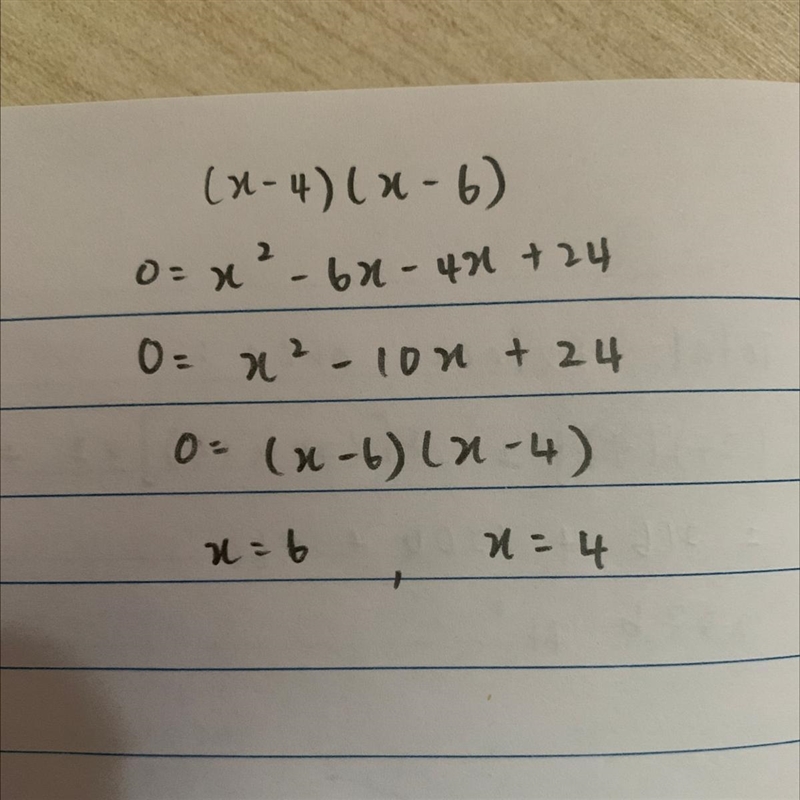 (x-4)(x-6)
0= x² - 6x - 4x + 24
0= x² - 10x + 24
0= (x-6)(x-4)
x=6 , x=4